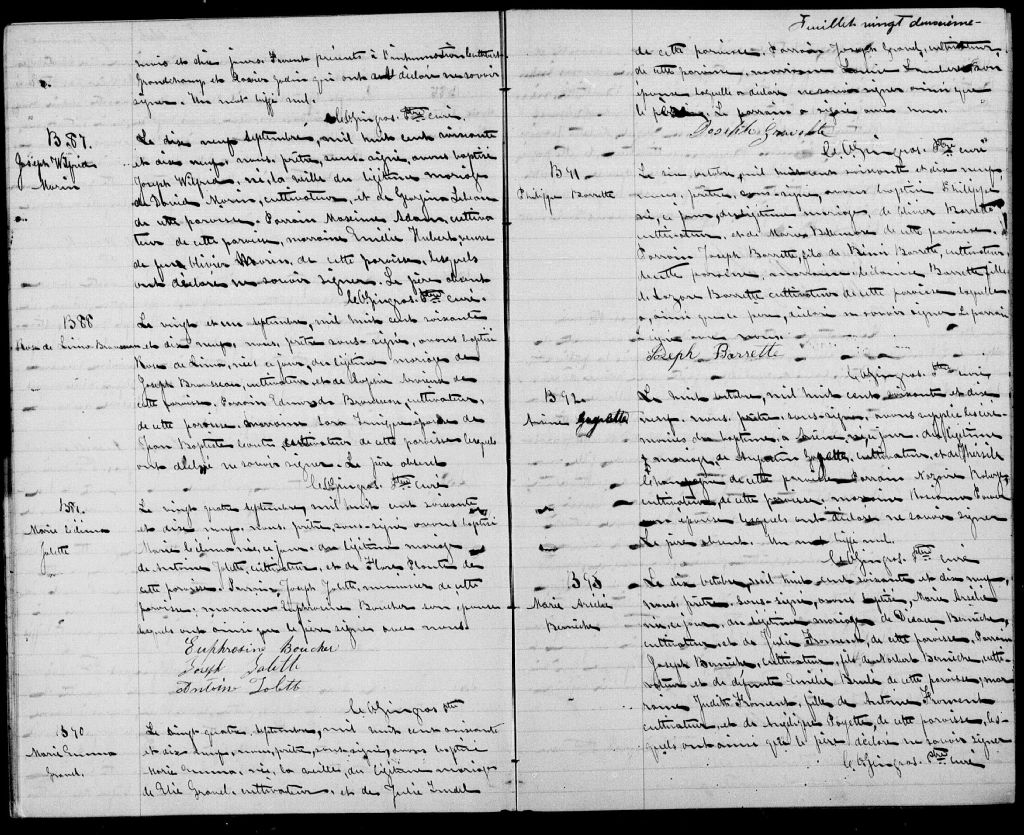 mois et dix jours. Furent présents à l'inhumation
Grandchamp et Xavier qui ont déclaré ne savoir
signer. Un mot biffé nul.
Gingras, Ptre curé.
B 87.
Joseph Wilfrid
Morin
Le dix neuf septembre, mil huit cent soixante
et dix neuf, nous, prêtre, sous-signé, avons baptisé
Joseph Wilfrid, né, la veille, du légitime mariage
de David Morin, cultivateur, et de
de cette paroisse. Parrain Maxime Adam, cultiva
teur de cette paroisse, marraine Emilie Hubert, veuve
de feu Olivier Morin, de cette paroisse, lesquels
ont déclaré ne savoir signer. Le père absent
Gingras, Ptre curé.
B 88
Rose de Lima Brousseau
Le vingt et un septembre, mil huit cent soixante
et dix neuf, nous, prêtre sous-signé, avons baptisé
Rose de Lima, née ce jour, du légitime mariage de
Joseph Brousseau, cultivateur, et de
cette paroisse. Parrain Edmond Brousseau, cultivateur,
de cette paroisse, marraine épouse de
Jean Baptiste cultivateur de cette paroisse lesquels
ont déclaré ne savoir signer. Le père absent
Gingras, Ptre curé
B 89.
Marie
Jolette
Le vingt quatre septembre, mil huit cent soixante
et dix neuf, nous, prêtre, sous-signé avons baptisé
Marie née, ce jour, du légitime mariage
de Antoine Jolette, cultivateur, et de Flore Plante de
cette paroisse. Parrain Joseph Jolette, de cette
paroisse, marraine Euphrosine Boucher son épouse
lesquels ont ainsi que le père signés avec nous.
Euphrosine Boucher
Joseph Jolette
Antoin Jolett
Gingras Ptre
B 90
Marie Emma
Gravel.
Le vingt quatre septembre, mil huit cent soixante
et dix neuf, nous, prêtre, sous-signé, avons baptisé
Marie Emma, née, la veille, du légitime mariage
de Elie Gravel, cultivateur, et de Julie
Feuillet vingt deuxième
de cette paroisse. Parrain Joseph Gravel, cultivateur,
de cette paroisse, marraine Louise son
épouse laquelle a déclaré ne savoir signer ainsi que
le père. Le parrain a signé avec nous.
Joseph
Gingras. Ptre curé
B 91
Philippe Barrette
Le six octobre, mil huit cent soixante et dix neuf
nous, prêtre, sous-signé, avons baptisé Philippe
né, ce jour, du légitime mariage, de Olivier Barrette
cultivateur, et de Marie de cette paroisse.
Parrain Joseph Barrette, fils de Rémi Barrette, cultivateur,
de cette paroisse, marraine Mélanine Barrette, fille
de Lazare Barrette cultivateur de cette paroisse laquelle
a, ainsi que le père, déclaré ne savoir signer le parrain
signe avec nous.
Joseph Barrette
Gingras, Ptre curé
B 92
Goyette
Le huit octobre, mil huit cent soixante et dix
neuf, nous, prêtre, sous-signé, avons suppléé les céré-
monies du baptême, à né ce jour, du légitime
mariage, de Augustin Goyette, cultivateur, et de
de cette paroisse Parrain Nazaire
cultivateur, de cette paroisse, marraine
son épouse lesquels ont déclaré ne savoir signer
Le père absent. Un mot biffé nul.
Gingras. Ptre curé
B 93
Marie Amélie
Bernèche
Le dix octobre, mil huit cent soixante et dix neuf,
nous, prêtre, sous-signé, avons baptisé, Marie Amélie
née, ce jour, du légitime mariage de Bernèche,
cultivateur, et de Julie Froment, de cette paroisse, Parrain
Joseph Bernèche, cultivateur, fils de Norbert Bernèche culti-
vateur, et de défunte Emélie Brulé de cette paroisse, mar
raine Judith Froment, fille de Antoine Froment
cultivateur, et de Payette, de cette paroisse, les-
quels ont ainsi que le père déclaré ne savoir signer
Gingras. Ptre curé